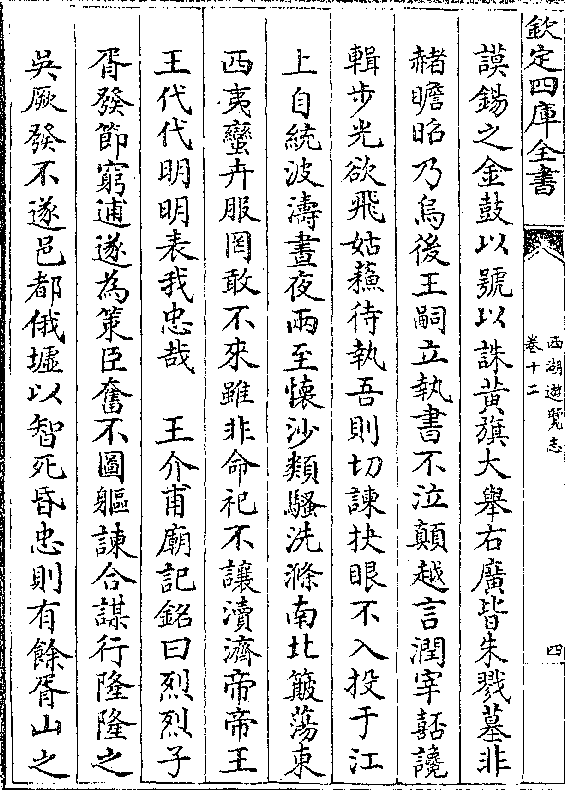 欽定四庫全書
西湖遊覽志
卷十二
四
謨錫之金鼓以號以誅黃旗大舉右廣皆朱戮墓非
赭瞻昭乃烏後王嗣立執書不泣顛越言潤宰嚭讒
輯步光欲飛姑蘓待執吾則切諫抉眼不入投于江
上自統波濤晝夜兩至懷沙類騷洗滌南北簸蕩東
西夷蠻卉服罔敢不來雖非命祀不讓瀆濟帝帝王
王代代明明表我忠哉　王介甫廟記銘曰烈烈子
胥發節窮逋遂為策臣奮不圖軀諫合謀行隆隆之
吳厥發不遂邑都俄墟以智死昏忠則有餘胥山之